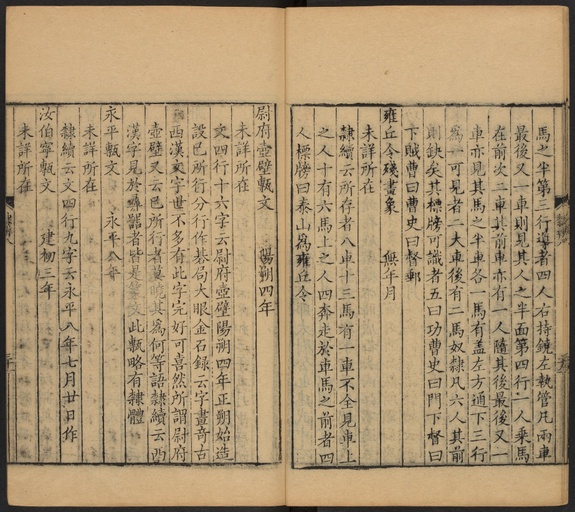 馬之半第三行導者四人右持鏡左執管凡兩車
最後又一車則見其人之半面第四行二人乘馬
在前次二車其前車亦有一人隨其後最後又一
車亦見其馬之半車各一馬有蓋左方通下三行
為一可見者二大車後有二馬奴隸凡六人其前
則缺矣其標牓可識者五曰功曹史曰門下督曰
下賊曹曰曹史曰督郵
雍丘令殘畫象 無年月
未詳所在
隸續云所存者八車十三馬有一車不全見車上
之人十有六馬上之人四奔走於車馬之前者四
人標牓曰泰山為雍丘令
尉府壺壁甎文 陽朔四年
未詳所在
文四行十六字云尉府壺壁陽朔四年正朔始造
設已所行分行作棊局大眼金石錄云字畫奇古
西漢文字世不多有此字完好可喜然所謂尉府
壺壁又云已所行者莫曉其為何等語隸續云西
漢字見於器者皆是此甎略有隸體
永平甎文 永平八年
未詳所在
隸續云文四行九字云永平八年七月廿日作
汝伯寧甎文 建初三年
未詳所在